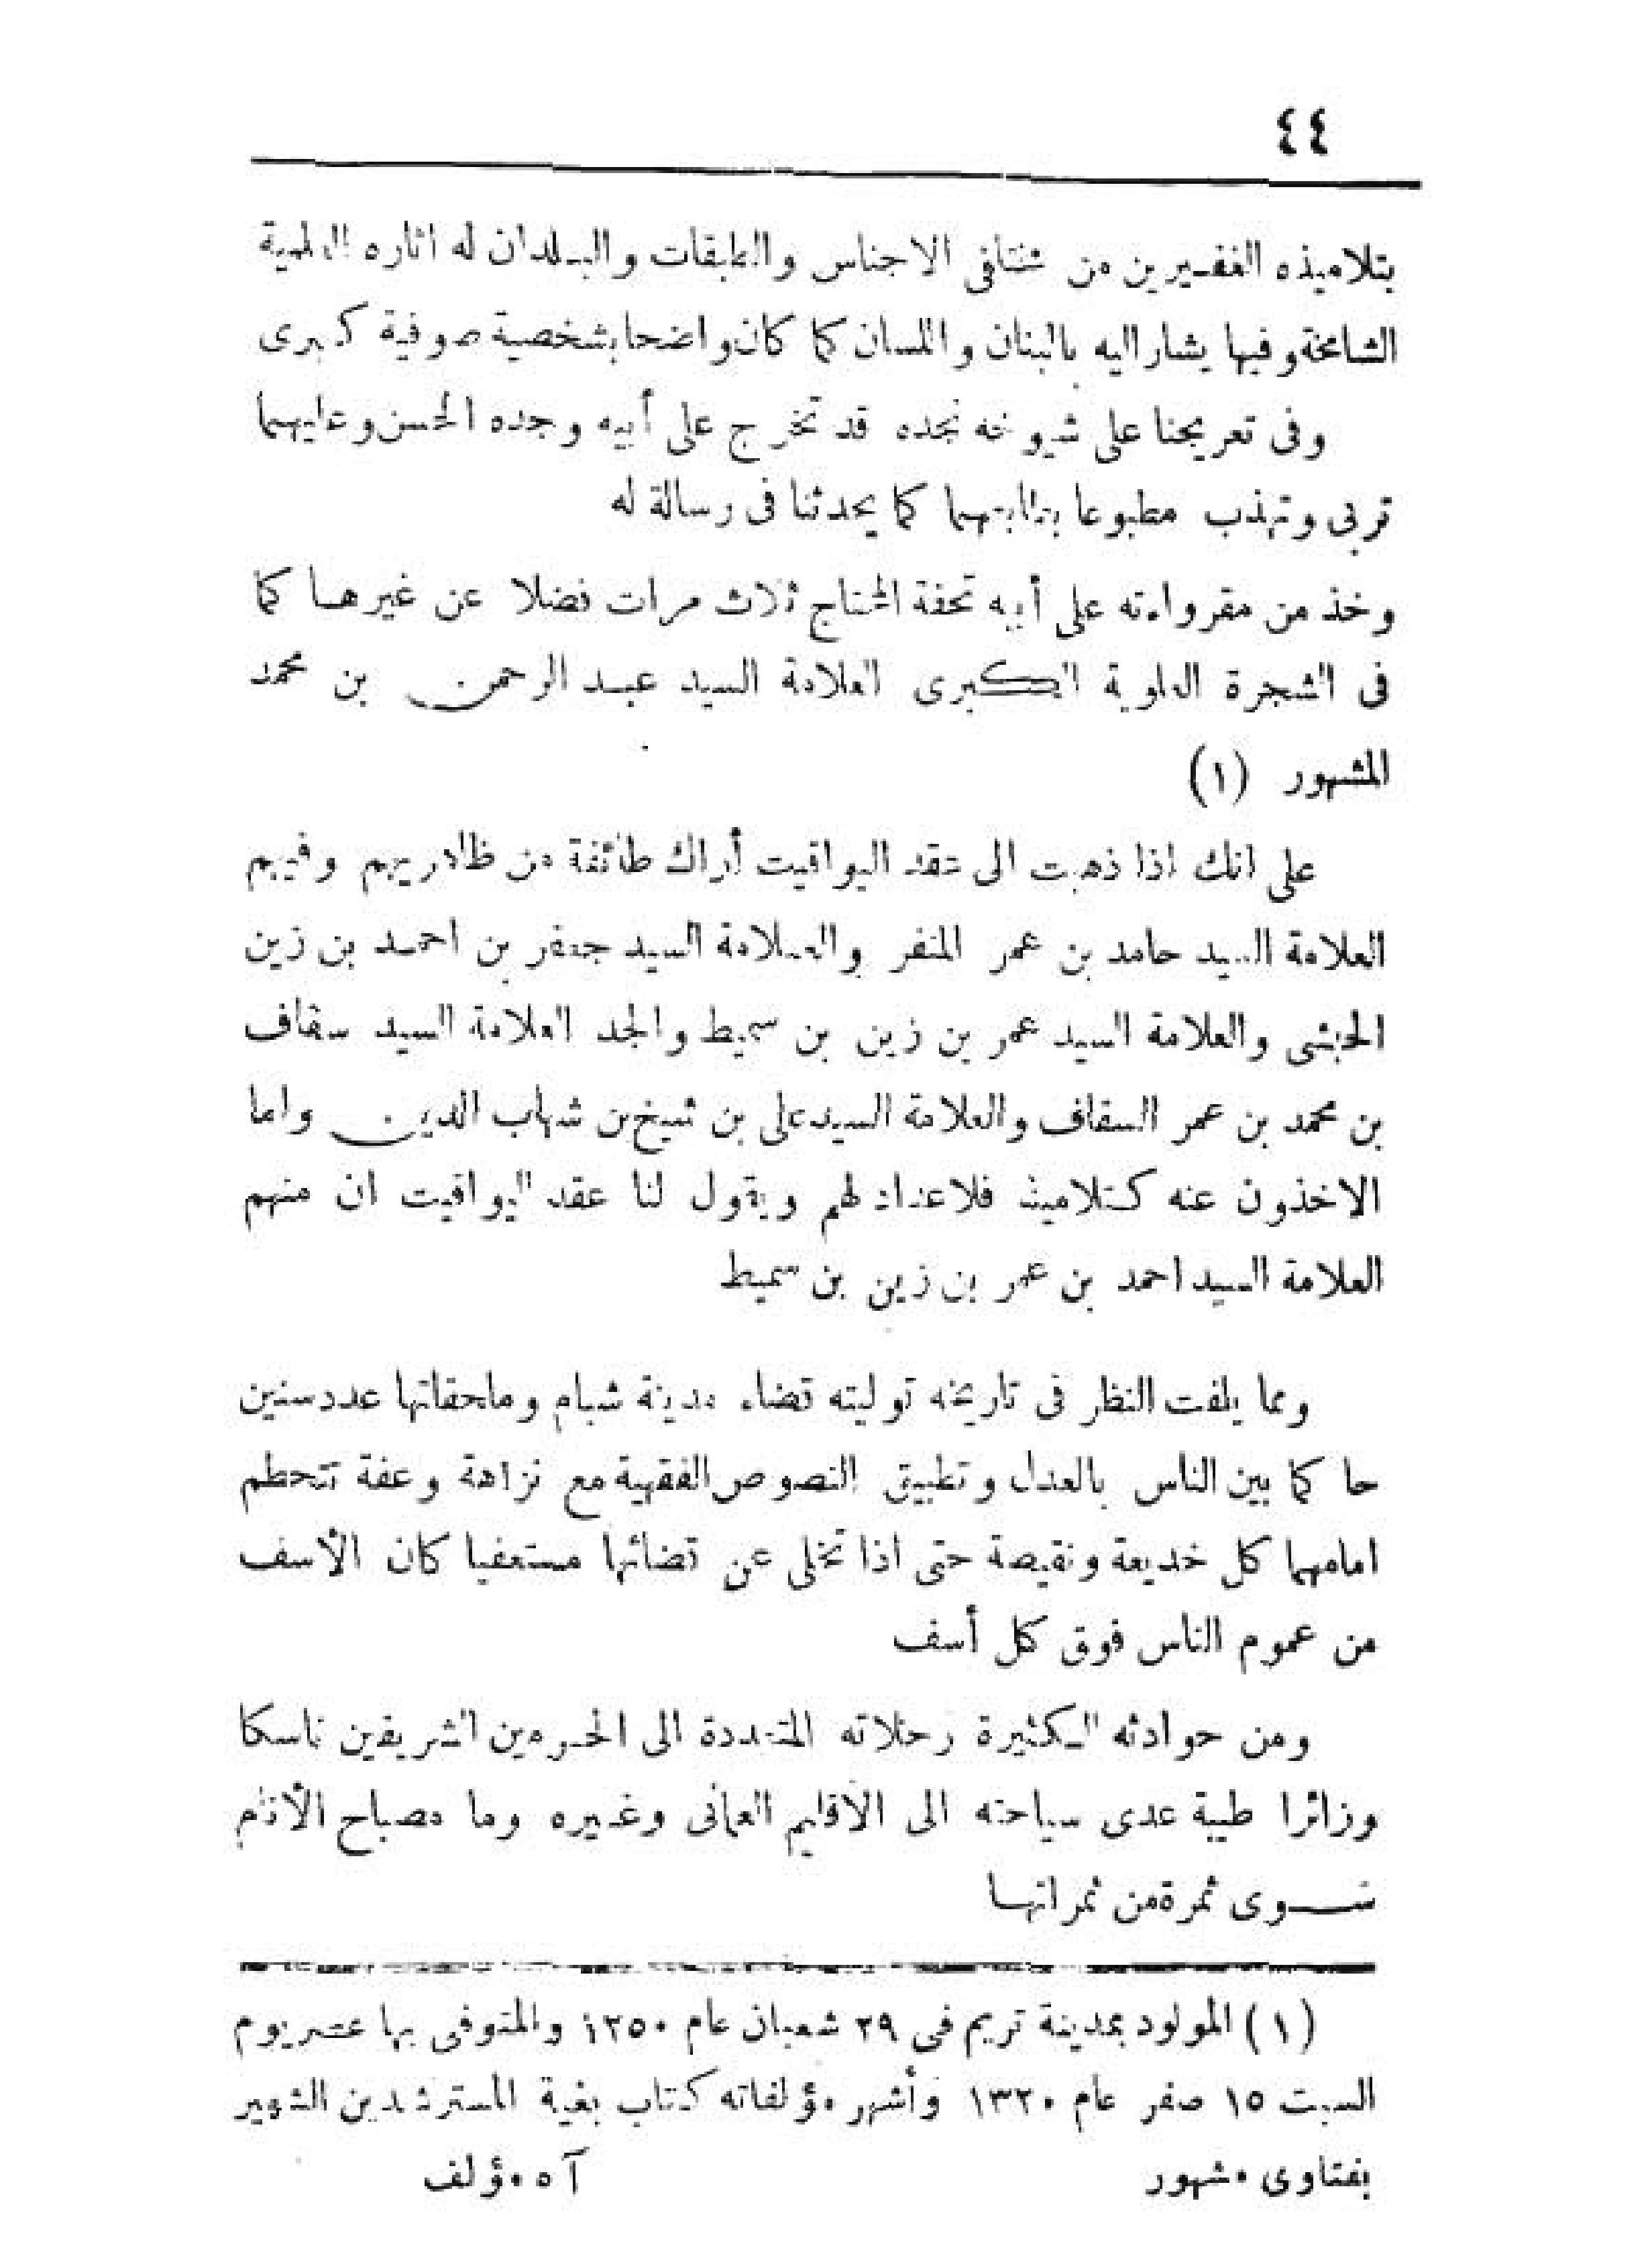 ٤٤
بتلاميذه الفقيرين من شتافى الاجناس والطبقات والبلدان له اثاره العلمية
الشامخة وفيها يشار اليه بالبنان واللسان كما كان واضحا بشخصية صوفية كبرى
وفى تعريجنا على شيوخه نجده قد تخرج على أبيه وجده الحسن وعليهما
تربى وتهذب مطبوعا بطابعهما كما يحدثنا فى رسالة له
وخذ من مقرواءته على أبيه تحفة المحتاج ثلاث مرات فضلا عن غيرها كما
فى الشجرة العلوية الكبرى العلامة السيد عبد الرحمن بن محمد
المشهور (١)
على انك اذا ذهبت الى عقد اليواقيت أراك طائفة من ظاهريهم وفيهم
العلامة السيد حامد بن عمر المنفر والعلامة السيد جعفر بن احمد بن زين
الحبشى والعلامة السيد عمر بن زين بن سميط والجد العلامة السيد سقاف
بن محمد بن عمر السقاف والعلامة السيد على بن شيخ بن شهاب الدين واما
الاخذون عنه كتلاميذ فلا عداد لهم ويقول لنا عقد اليواقيت ان منهم
العلامة السيد احمد بن عمر بن زين بن سميط
ومما يلفت النظر فى تاريخه توليته قضاء مدينة شبام وملحقاتها عدد سنين
حا كما بين الناس بالعدل وتطبيق النصوص الفقهية مع نزاهة وعفة تتحطم
امامهما كل خديعة ونقيصة حتى اذا تخلى عن قضائها مستعفيا كان الأسف
من عموم الناس فوق كل أسف
ومن حوادثه الكثيرة رحلاته المتعددة الى الحرمين الشريفين ناسكا
وزائرا طيبة عدى سياحته الى الاقليم العمانى وغيره وما مصباح الأنام
سوى ثمرة من ثمراتها
(١) المولود بمدينة تريم فى ٢٩ شعبان عام ١٢٥٠ والمتوفى بها عصر يوم
السبت ١٥ صفر عام ١٣٢٠ وأشهر مؤلفاته كتاب بغية المسترشدين الشهير
بفتاوى مشهور آ ه مؤلف